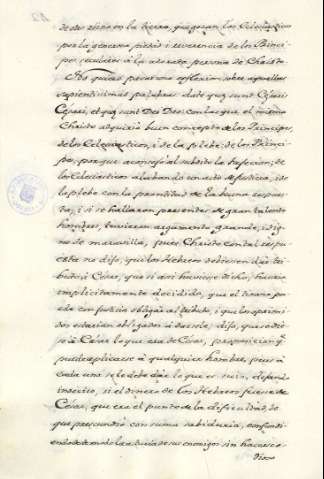 de ser esso en la tierra, que gozan los Eclesiasticos
por la generosa piedad i reverencia de los Princi-
pes, recuidos a la adorable persona de Christo.
No quiero pasar una reflexion sobre aquellas
sapientisimas palabras date quæ sunt Cesaris
Cesari, et quæ sunt Dei Deo: con las que el mismo
Christo adquirió buen concepto de los Principes,
de los Eclesiasticos, i de la plebe: de los Princi-
pes, porque aconsejó al subdito la sujecion; de
los Eclesiasticos alabando un acto de justicia, i de
la plebe con la prontitud de la buena respues-
ta, i si se hallaron presentes de gran talento
hombres, tuvieron argumento grande, i dig-
no de maravilla, pues Christo con tal respu-
esta no dijo, que los Hebreos debiesen dar tri-
buto à Cesar, que si asi huviese dicho, havria
implicitamente decidido, que el tirano pue-
de con justicia obligar al tributo, i que los oprimi-
dos estarian obligados à darsele; dijo, que se die-
se à Cesar lo que era de Cesar, proposicion q.e
puede aplicarse à qualquiera hombre, pues à
cada uno se le debe dar lo que es suio, dejando
indeciso, si el dinero de los Hebreos fuese de
Cesar, que era el punto de la dificultad, de
que prescindió con suma sabiduria, confundi-
endo de este modo la astucia de sus enemigos sin hacerse o-
dioso